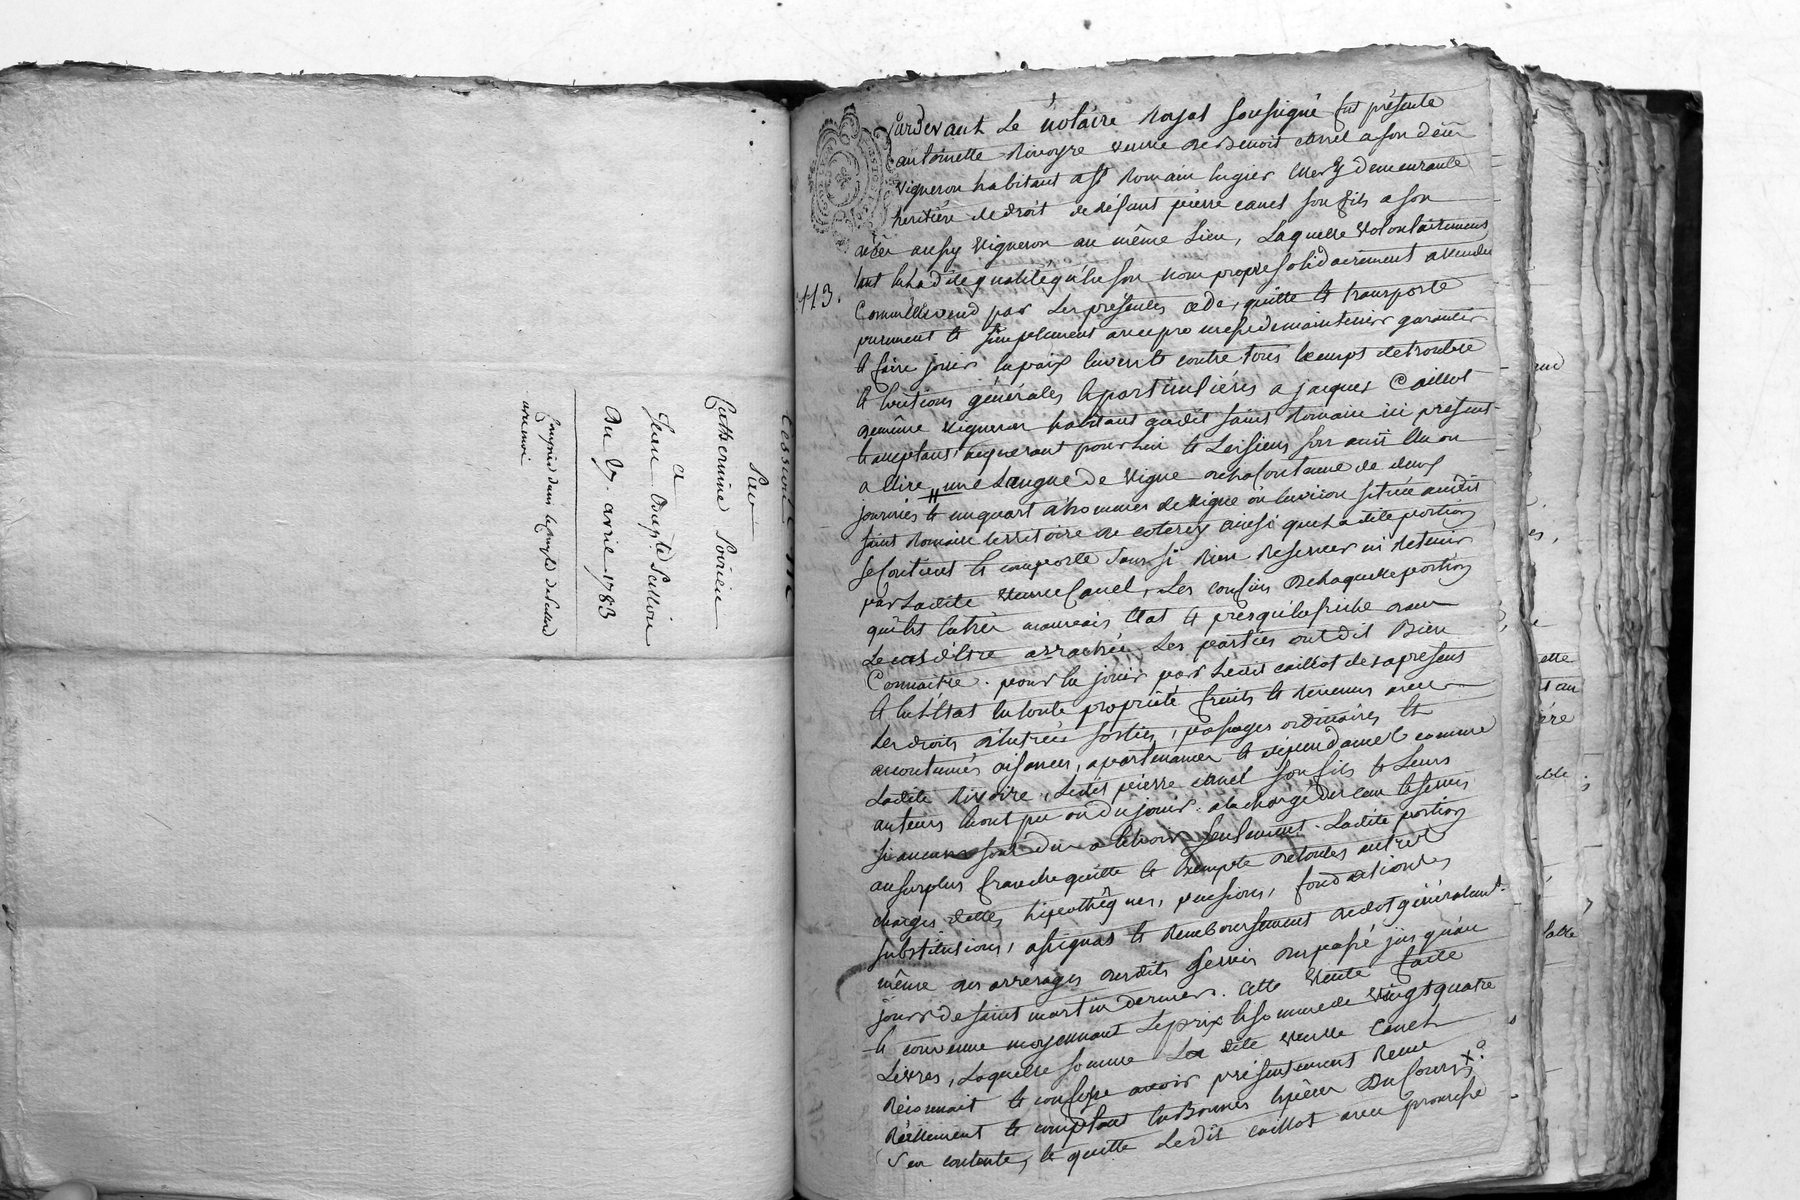 Cession
Par
Catherine Poirieu
a
Jean Bapte Sallvire
Du 7 avril 1783
avec moi
113.
Pardevant Le notaire Royal soussigné fut présente
antoinette Rivoyre veuve de Benoit canel a son décès
vigneron habitant a st Romain lugier ou elle demeurante
heritière de droit de défunt pierre canel son fils a son
décès aussy vigneron au même Lieu, Laquelle volontairement
tant en la dite qualité qu'en son nom propre solidairement a vendu
Comm'elle vend par Les présentes cede, quitte et transporte
purement et simplement avec promesse de maintenir garantir
et faire jouir en paix envers et contre tous temps de trouble
et evictions générales et particulières a jacques Caillot
vigneron habitant audit saint Romain ici présent
et acceptant, acquerant pour Lui et Les siens
a dire une Langue de vigne de la Contenue de deux
journées et un quart d'hommes de vigne ou environ située audit
saint Romain territoire de coterex ainsi que La dite portion
se Contient et comporte sans si Rien Reserver ni Retenir
par La dite veuve Canel, Les confins de Laquelle portion
qui est en très mauvais Etat et presqu'en friche dans
Le cas d'être arrachée Les parties ont dit Bien
Connaitre. pour en jouir par Ledit caillot des a present
et en l'Etat en toute propriété fruits et Revenus avec
Les droits d'Entrées sorties, passages ordinaires et
accoutumés aisances, apartenances et dépendances comme
La dite Rivoire, Ledit pierre canel son fils et Leurs
auteurs en ont pu ou du jouir. a la charge des cens et servis
si aucuns sont dus a l'avenir seulement. La dite portion
au surplus franche quitte et Exempte de toutes autres
charges dettes hipothèques, pensions, fondations
substitutions, assignats et Remboursement de dot généralement
même des arrérages desdits servis du passé jusqu'au
jour de saint martin dernier. Cette vente faite
et convenue moyennant Le prix et somme de vingt quatre
Livres, Laquelle somme La dite veuve Canel
Reconnait et confesse avoir présentement Reçue
Réellement et comptant en Bonnes Espèces Du Cours X
s'en contente, et quitte Ledit caillot avec promesse